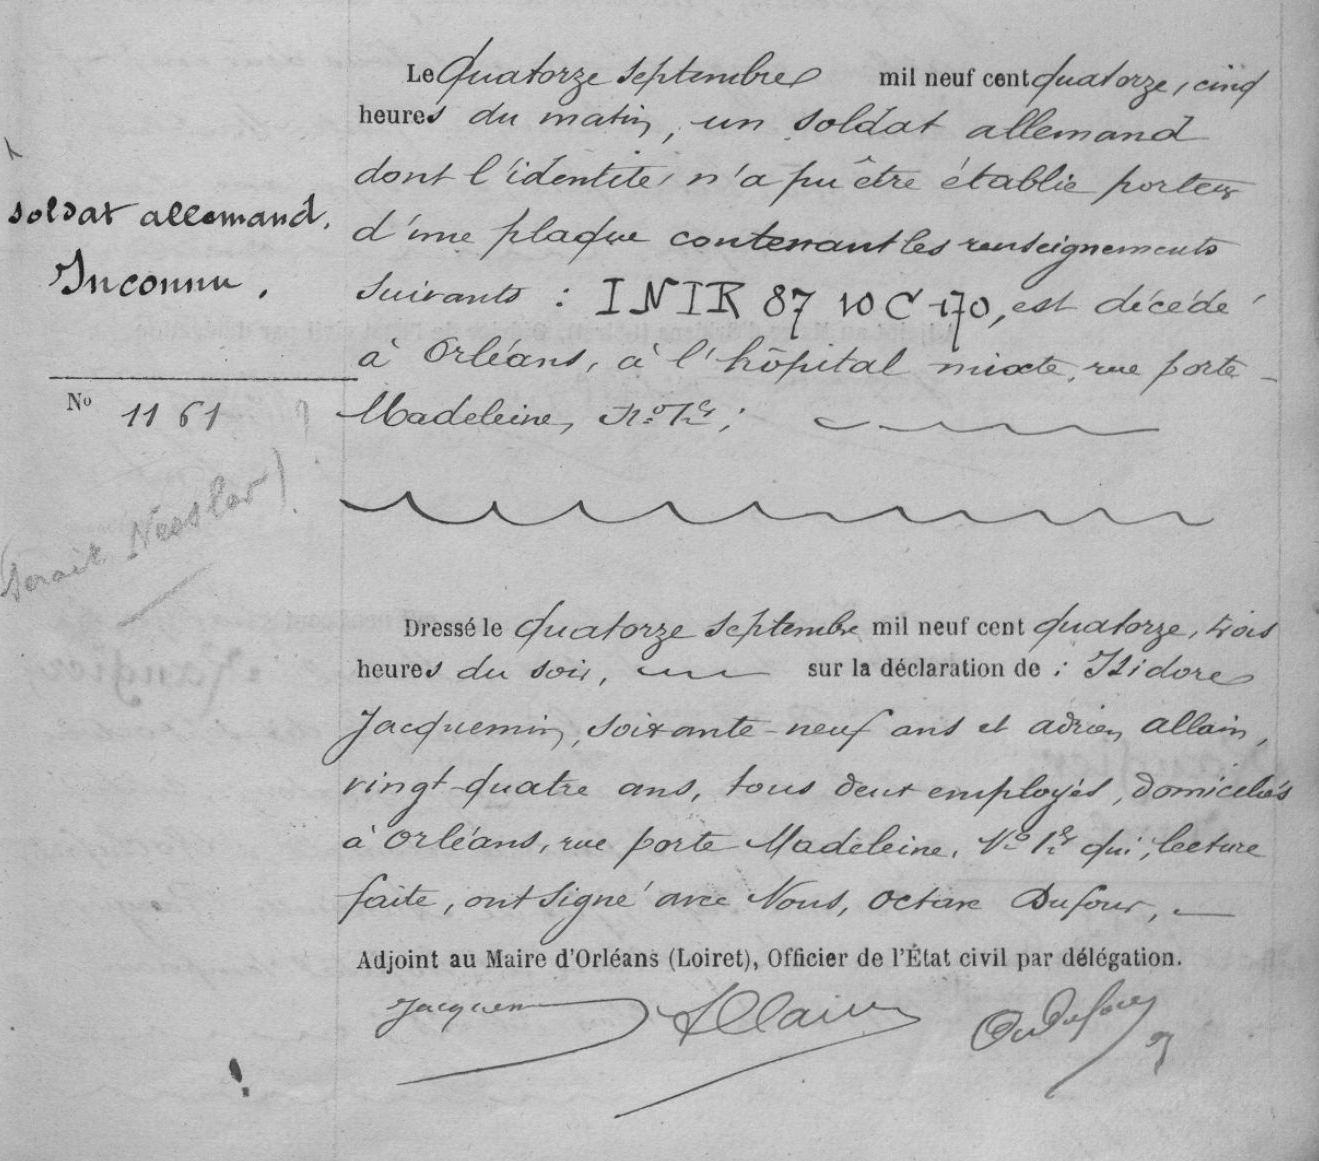 soldat allemand.
Inconnu.
No 1161
(serait Neesler)
Le Quatorze septembre mil neuf cent quatorze, cinq
heures du matin, un soldat allemand
dont l'identité n'a pu être établie porteur
d'une plaque contenant les renseignements
suivants : INIR 87 10 C 170, est décédé
à Orléans, à l'hôpital mixte, rue porte-
Madeleine, No 1er ;
Dressé le Quatorze septembre mil neuf cent quatorze, trois
heures du soir, sur la déclaration de : Isidore
Jacquemin, soixante-neuf ans et adrien allain,
vingt-quatre ans, tous deux employés, domiciliés
à Orléans, rue porte Madeleine, No 1er qui, lecture
faite, ont signé avec Nous, Octave Dufour,
Adjoint au Maire d'Orléans (Loiret), Officier de l'État civil par délégation.
Jacquemin Allain Oct Dufour